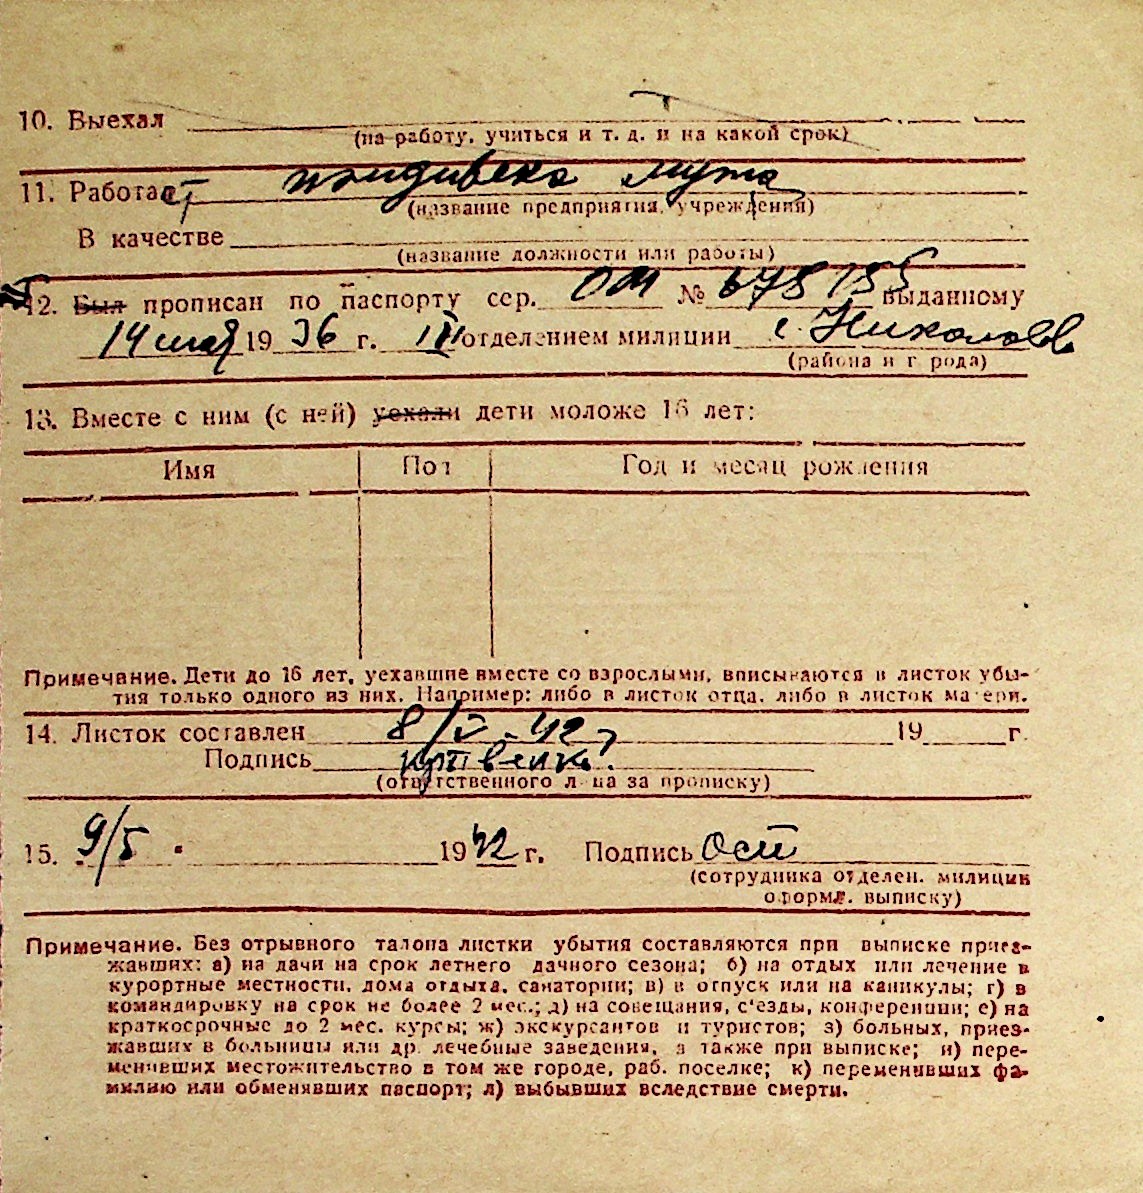 10. Выехал
(на работу, учиться и т. д. и на какой срок)
11. Работает иждивека мужа
(название предприятия, учреждения)
В качестве
(название должности или работы)
12. Был прописан по паспорту сер. ОМ № 678185 выданному
14 мая 1936 г. III отделением милиции г. Николаев
(района и города)
13. Вместе с ним (с ней) уехали дети моложе 16 лет:
Имя Пол Год и месяц рождения
Примечание. Дети до 16 лет, уехавшие вместе со взрослыми, вписываются в листок убы-
тия только одного из них. Например: либо в листок отца, либо в листок матери.
14. Листок составлен 8/V-42 19 г.
Подпись
(ответственного лица за прописку)
15. 9/5 1942 г. Подпись Ост
(сотрудника отделен. милиции
оформл. выписку)
Примечание. Без отрывного талона листки убытия составляются при выписке приез-
жавших: а) на дачи на срок летнего дачного сезона; б) на отдых или лечение в
курортные местности, дома отдыха, санатории; в) в отпуск или на каникулы; г) в
командировку на срок не более 2 мес.; д) на совещания, с'езды, конференции; е) на
краткосрочные до 2 мес. курсы; ж) экскурсантов и туристов; з) больных, приез-
жавших в больницы или др. лечебные заведения, а также при выписке; и) пере-
менивших местожительство в том же городе, раб. поселке; к) переменивших фа-
милию или обменявших паспорт; л) выбывших вследствие смерти.